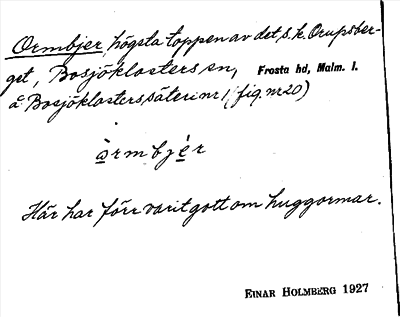 Ormbjer, högsta toppen av det s.k. Orupsber-
get, Bosjöklosters sn, Frosta hd, Malm. l.
å Bosjöklosters säteri nr 1 (fig. nr 20)
òrmbjér
Här har förr varit gott om huggormar.
EINAR HOLMBERG 1927